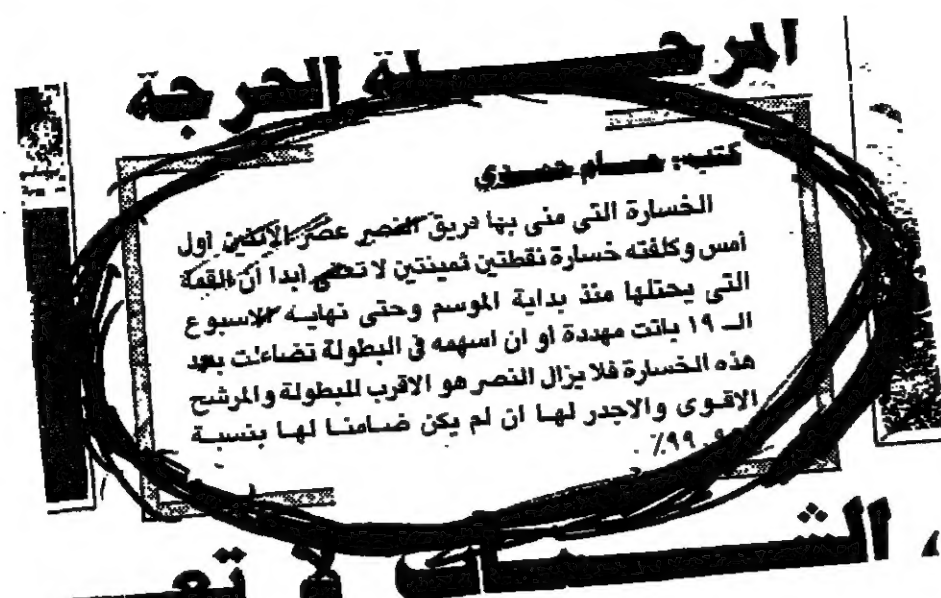 المرحلة الحرجة
كتب: حمدي
الخسارة التى منى بها فريق النصر عصر الاثنين اول
أمس وكلفته خسارة نقطتين ثمينتين لا تعنى ابدا أن القمة
التى يحتلها منذ بداية الموسم وحتى نهاية الاسبوع
الـ ١٩ باتت مهددة او ان اسهمه في البطولة تضاءلت بعد
هذه الخسارة فلا يزال النصر هو الاقرب للبطولة والمرشح
الاقوى والاجدر لها ان لم يكن ضامنا لها بنسبة
٩٩٪ .
لا